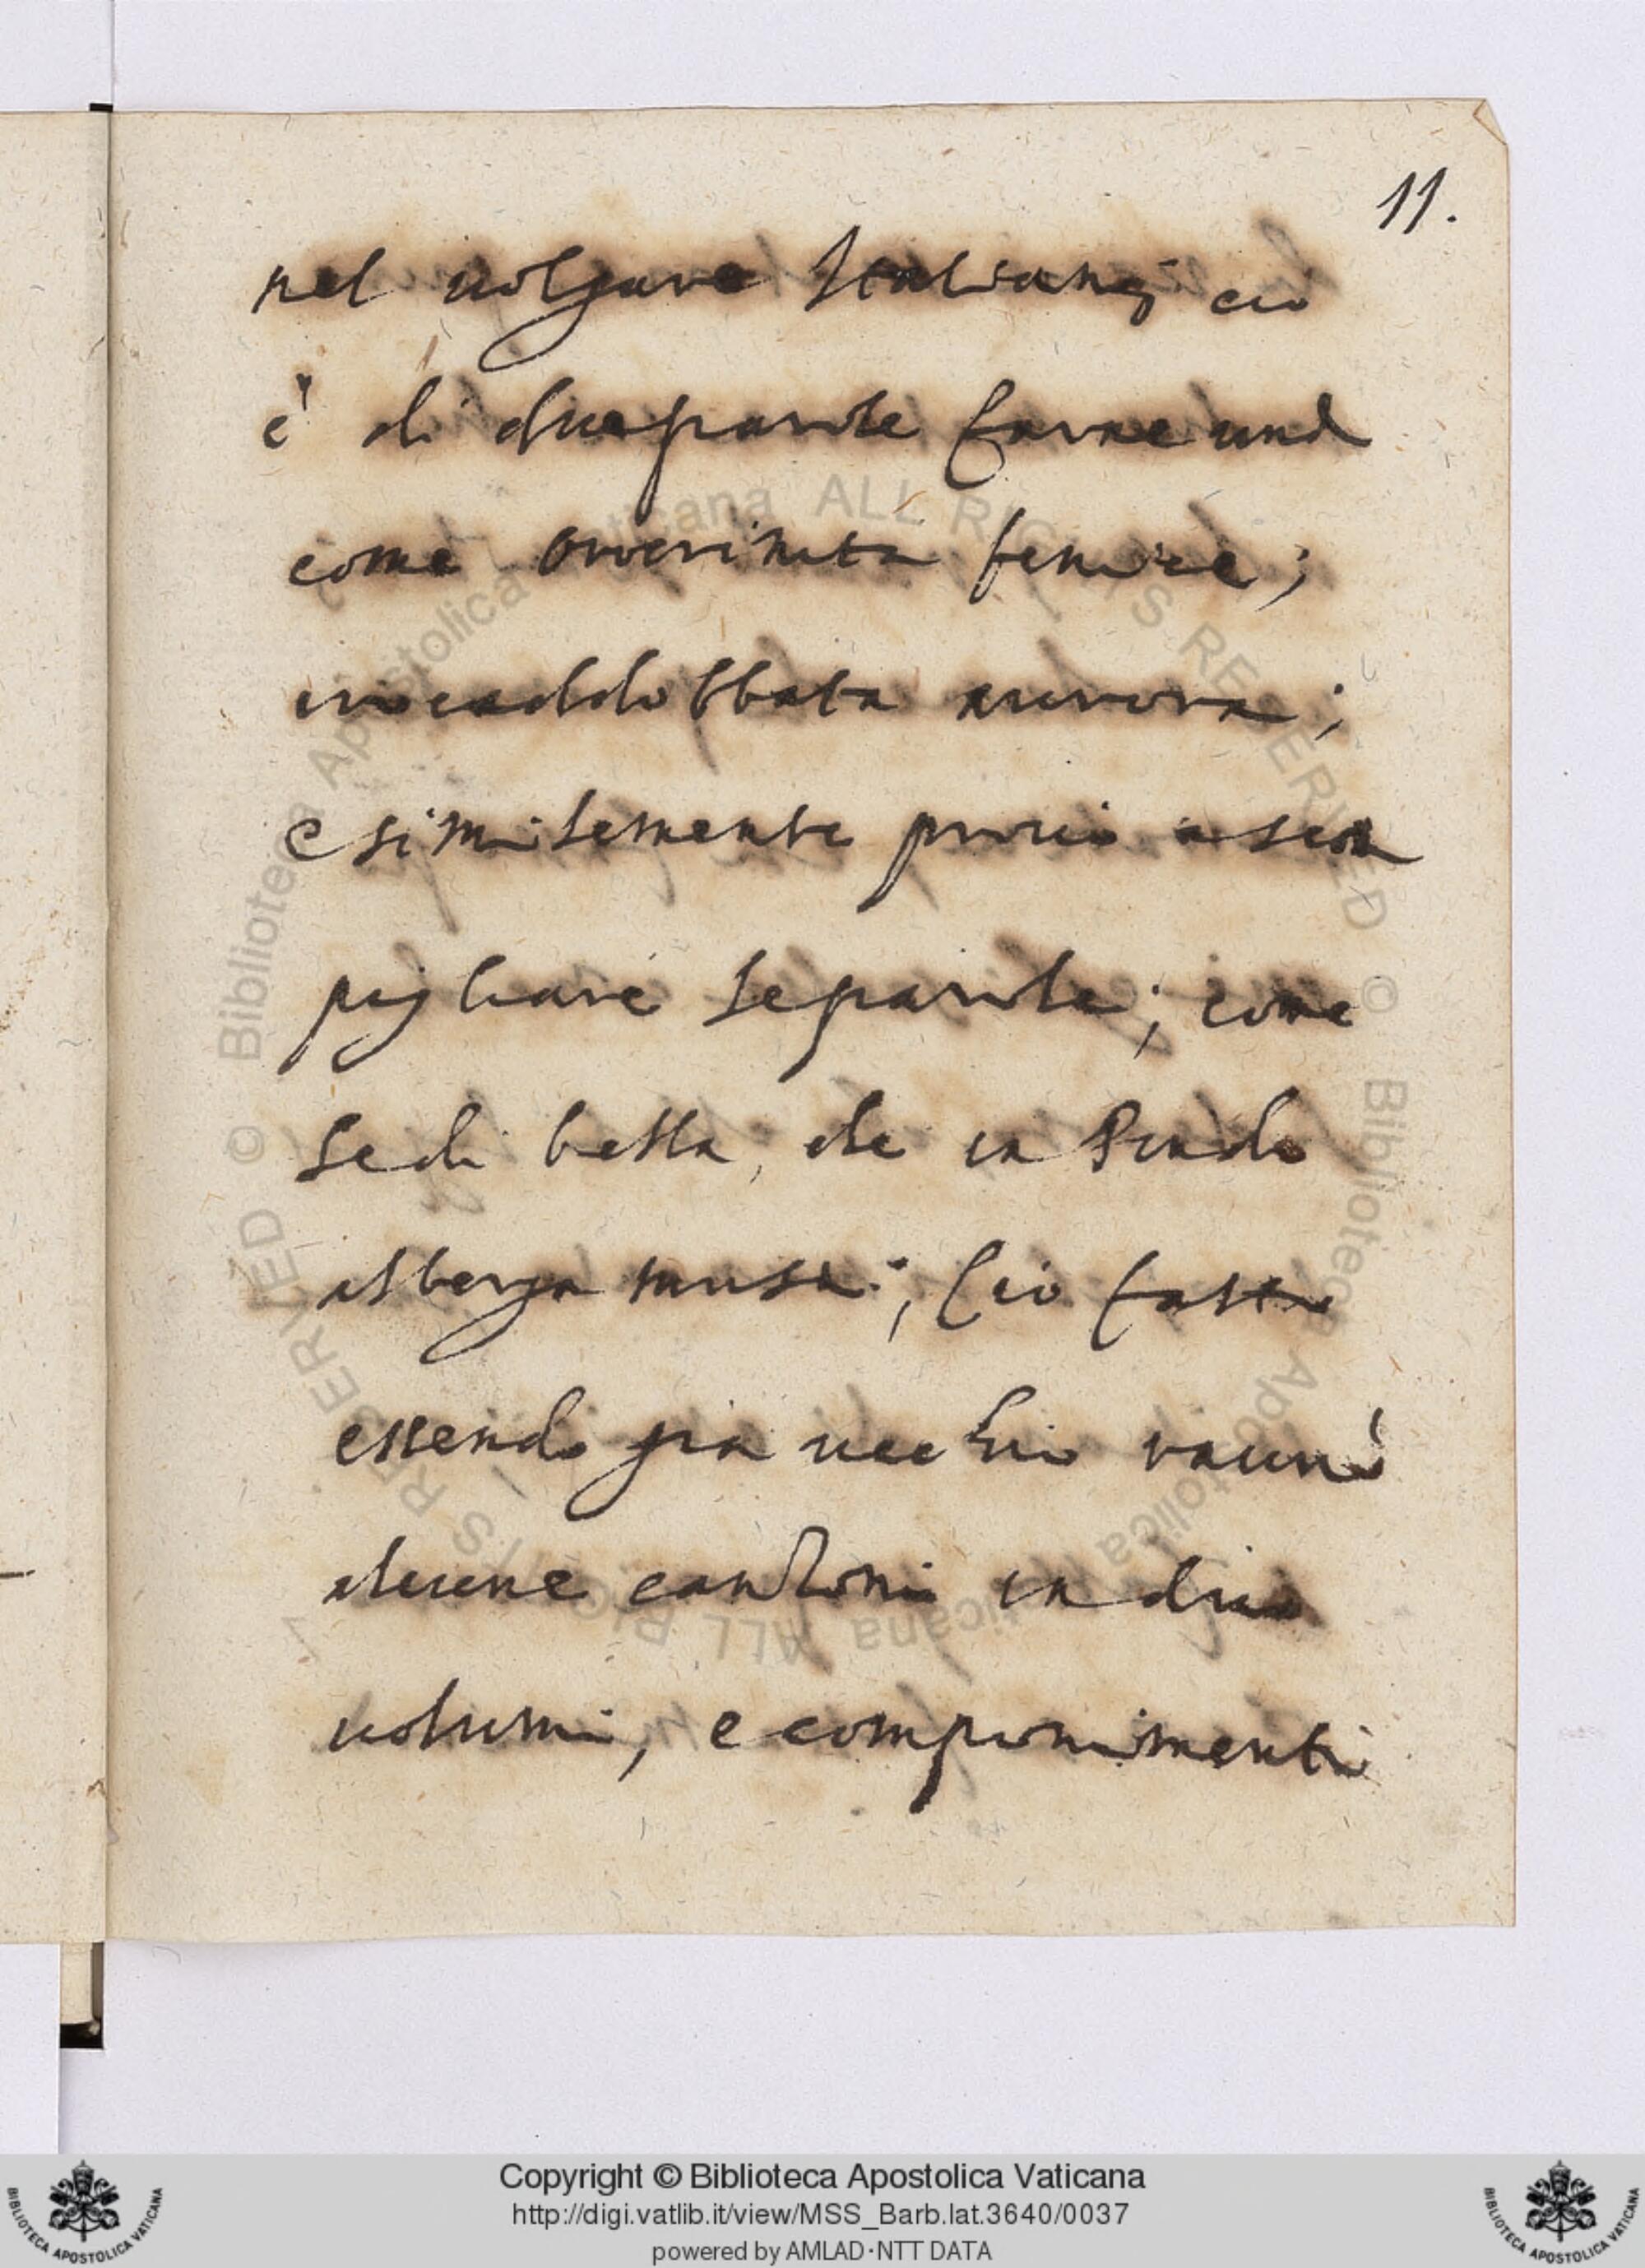 11.
nel uolgare Italiano; ciò
è di due parole farne una
come orocrinita fenice;
riccaddobbata aurora;
e similemente provò a scom
pigliare le parole; come
se di bella, che in Pindo
alberga musa; Ciò fatto
essendo già uecchio raunò
alcune canzoni in due
uolumi, e componimenti
© Biblioteca Apostolica Vaticana ALL RIGHTS RESERVED © Biblioteca Apostolica Vaticana ALL RIGHTS RESERVED
Copyright © Biblioteca Apostolica Vaticana
http://digi.vatlib.it/view/MSS_Barb.lat.3640/0037
powered by AMLAD·NTT DATA
BIBLIOTECA APOSTOLICA VATICANA
BIBLIOTECA APOSTOLICA VATICANA